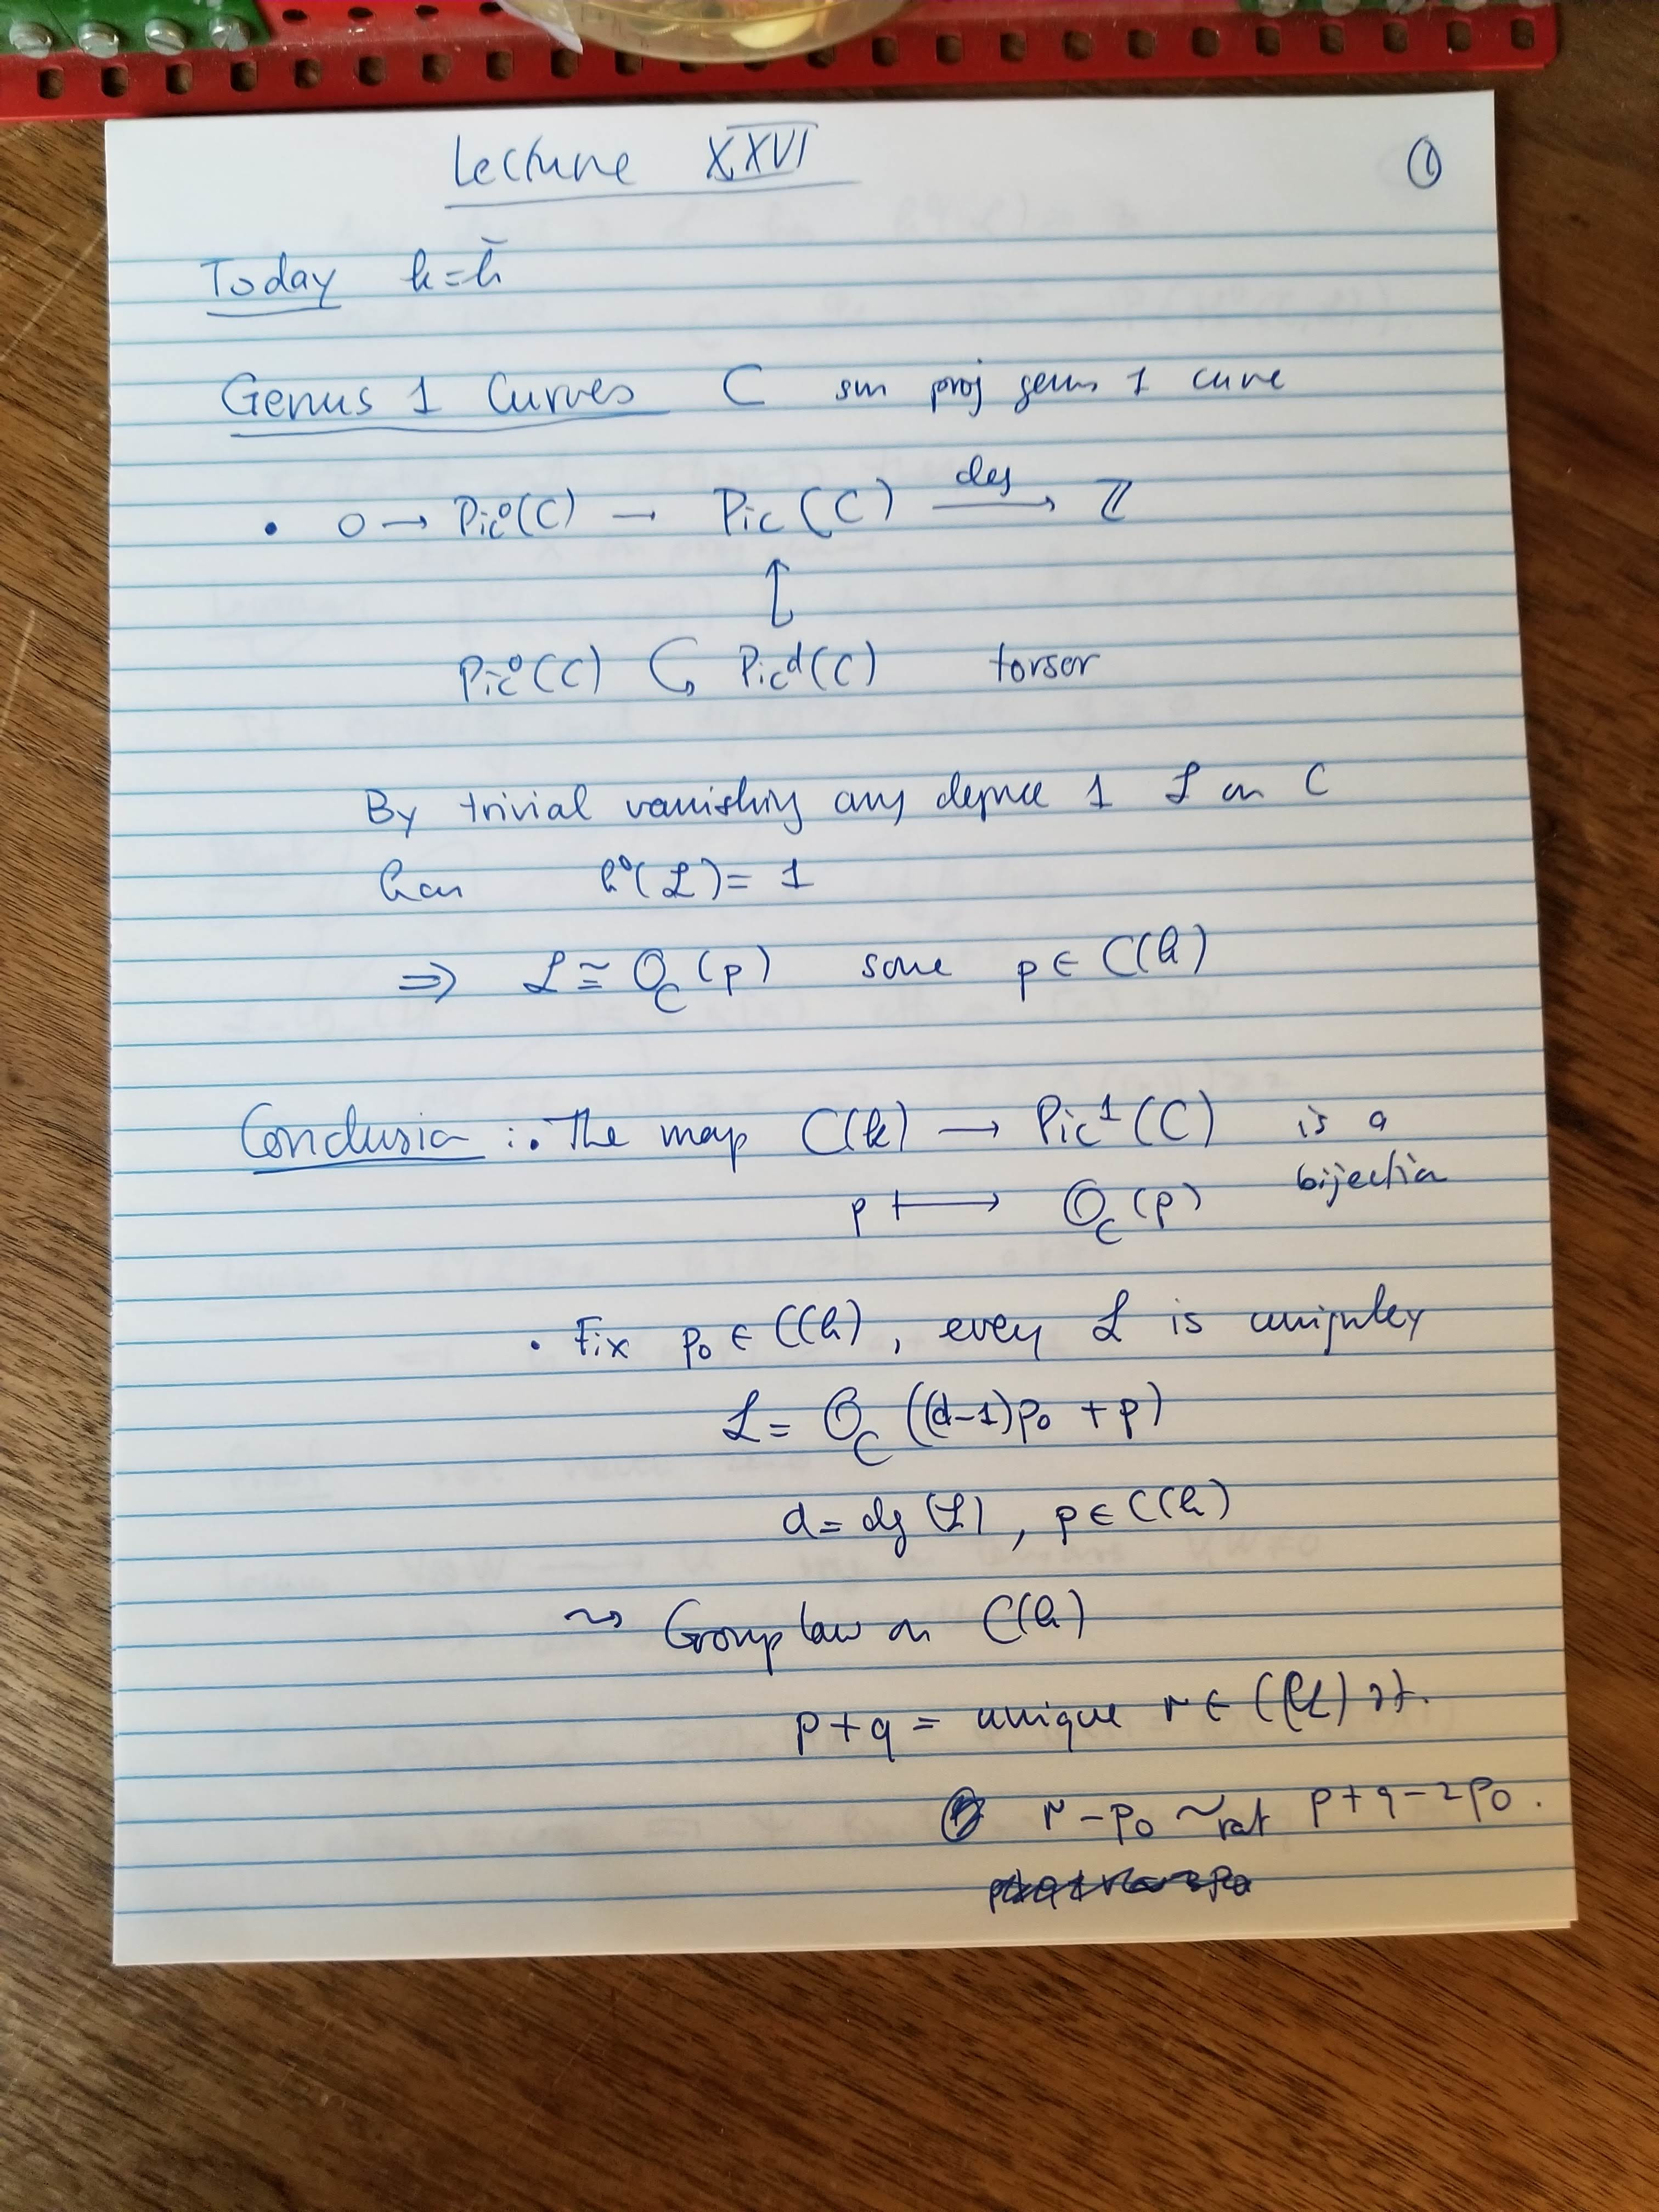 Lecture XXVI ①
Today k = k̄
Genus 1 Curves C sm proj genus 1 curve
• 0 → Pic⁰(C) → Pic(C) —deg→ ℤ
Pic⁰(C) ⤹ Picᵈ(C) torsor
By trivial vanishing any degree 1 ℒ on C
has h⁰(ℒ) = 1
⇒ ℒ ≅ O_C(p) some p ∈ C(k)
Conclusion : • The map C(k) → Pic¹(C) is a
p ⟼ O_C(p) bijection
• Fix p₀ ∈ C(k), every ℒ is uniquley
ℒ = O_C((d-1)p₀ + p)
d = dg(ℒ), p ∈ C(k)
⇝ Group law on C(k)
p + q = unique r ∈ C(k) st.
r - p₀ ~rat p + q - 2p₀.